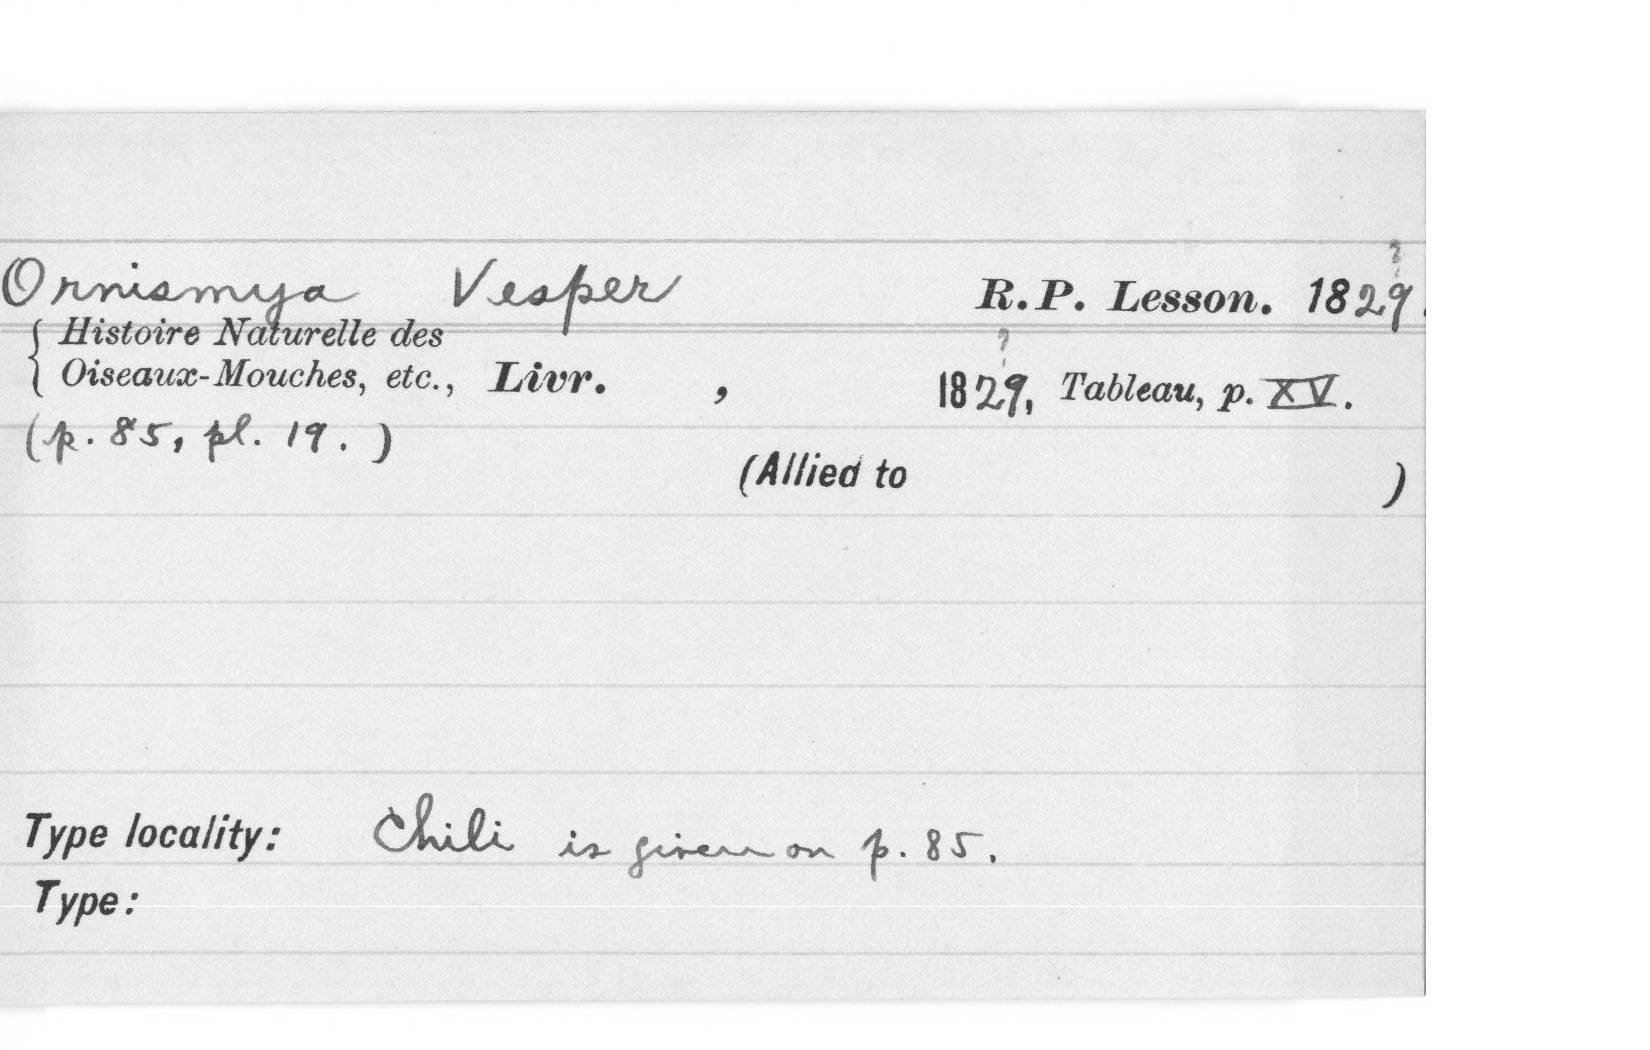 Ornismya Vesper R.P. Lesson. 1829?.
{ Histoire Naturelle des
Oiseaux-Mouches, etc., Livr. , 1829?, Tableau, p. XV.
(p. 85, pl. 19. )
(Allied to )
Type locality: Chili is given on p. 85.
Type: